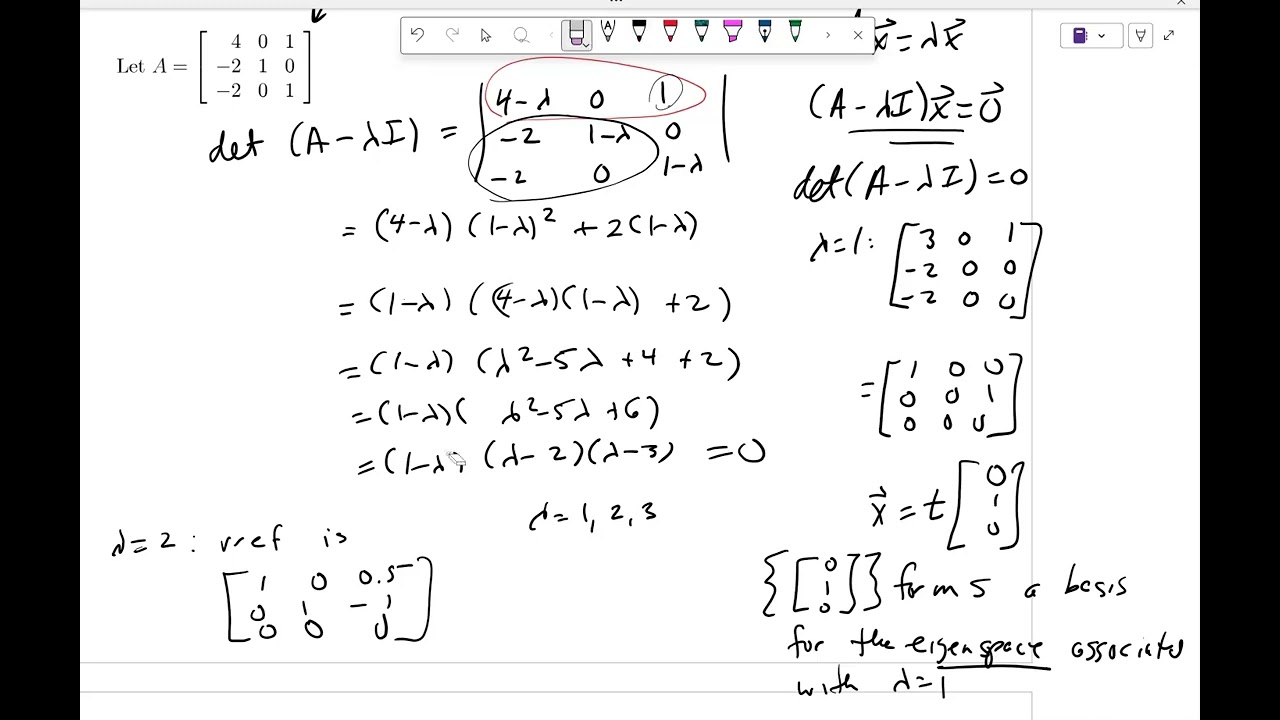 Let A = [ 4 0 1
-2 1 0
-2 0 1 ]
det (A - λI) = | 4-λ 0 1
-2 1-λ 0
-2 0 1-λ |
= (4-λ) (1-λ)² + 2(1-λ)
= (1-λ) ((4-λ)(1-λ) + 2)
= (1-λ) (λ² - 5λ + 4 + 2)
= (1-λ) ( λ² - 5λ + 6)
= (1-λ) (λ - 2)(λ - 3) = 0
λ = 1, 2, 3
λ = 2 : rref is
[ 1 0 0.5
0 1 -1
0 0 0 ]
x⃗ = λx⃗
(A - λI)x⃗ = 0⃗
det(A - λI) = 0
λ = 1: [ 3 0 1
-2 0 0
-2 0 0 ]
= [ 1 0 0
0 0 1
0 0 0 ]
x⃗ = t [ 0
1
0 ]
{ [ 0
1
0 ] } forms a basis
for the eigenspace associated
with λ = 1